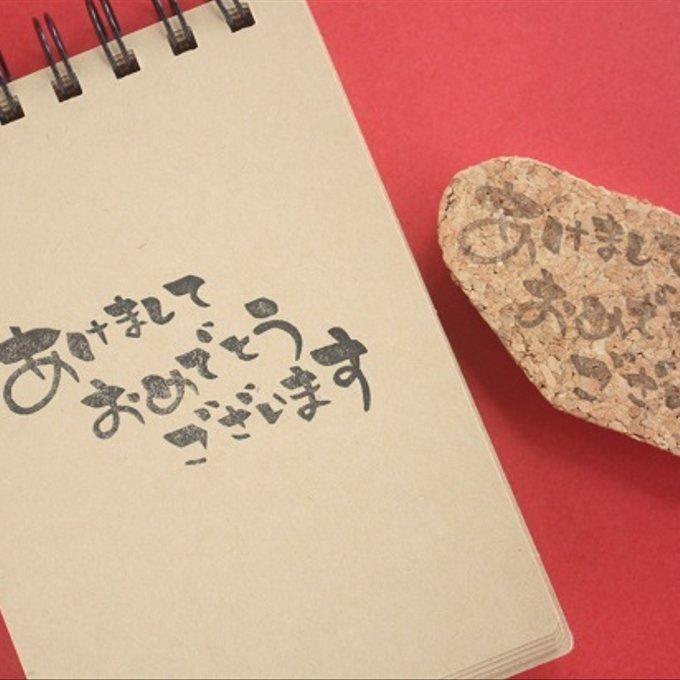 あけまして
おめでとう
ございます
あけまして
おめで
ござ